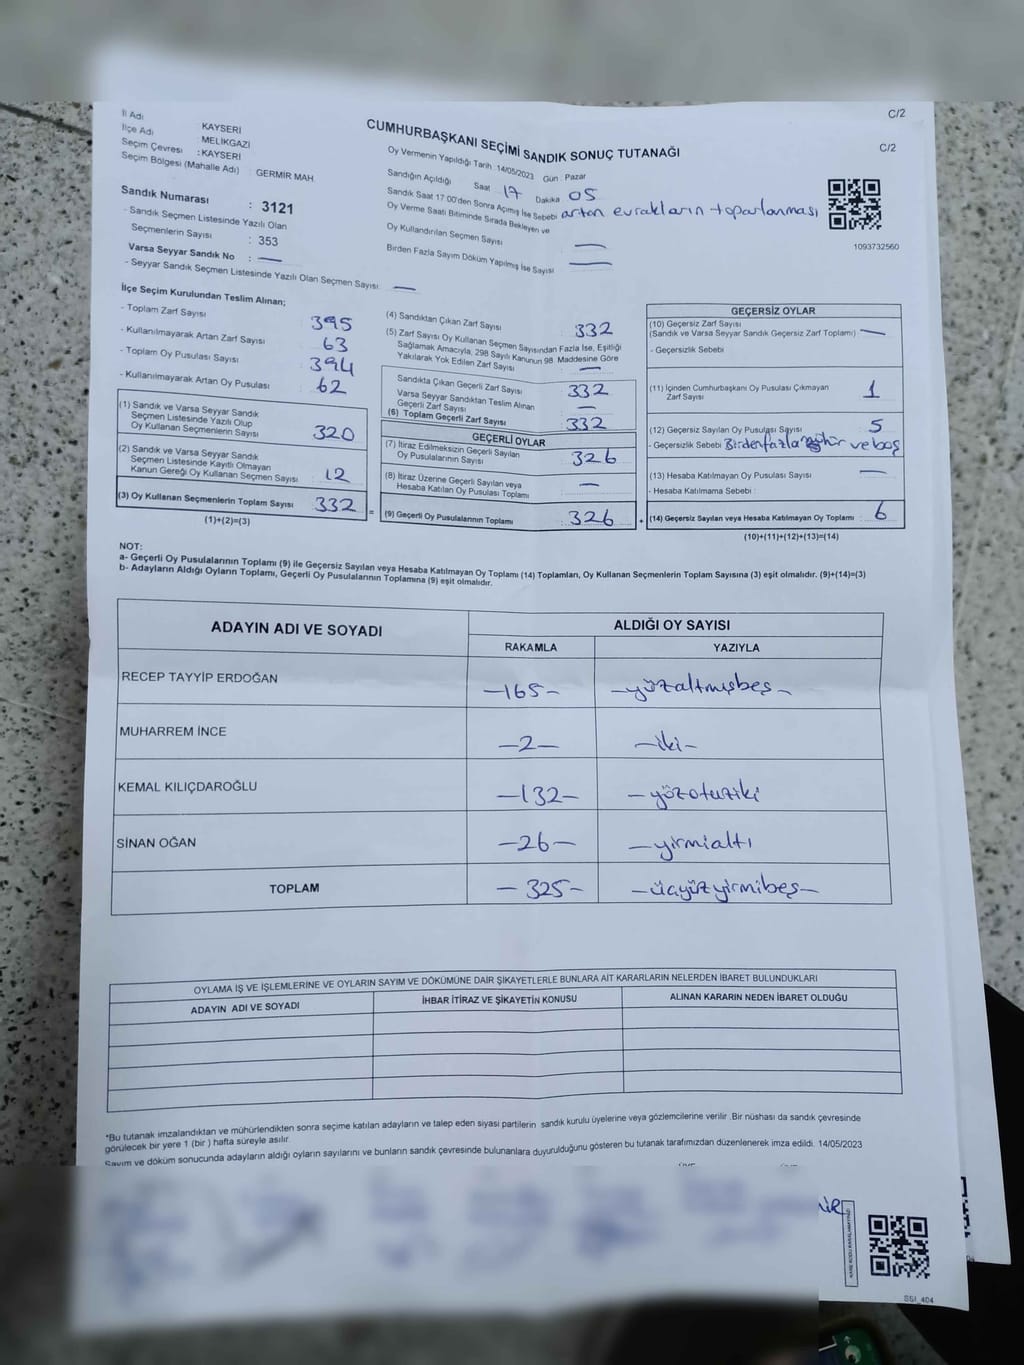 C/2
C/2
İl Adı
KAYSERİ
İlçe Adı
MELİKGAZİ
Seçim Çevresi : KAYSERİ
Seçim Bölgesi (Mahalle Adı) : GERMİR MAH
Sandık Numarası : 3121
- Sandık Seçmen Listesinde Yazılı Olan
Seçmenlerin Sayısı : 353
Varsa Seyyar Sandık No : —
- Seyyar Sandık Seçmen Listesinde Yazılı Olan Seçmen Sayısı: —
CUMHURBAŞKANI SEÇİMİ SANDIK SONUÇ TUTANAĞI
Oy Vermenin Yapıldığı Tarih :14/05/2023 Gün : Pazar
Sandığın Açıldığı Saat 17 Dakika 05
Sandık Saat 17 00'den Sonra Açımış İse Sebebi artan evrakların toparlanması
Oy Verme Saati Bitiminde Sırada Bekleyen ve
Oy Kullandırılan Seçmen Sayısı —
Birden Fazla Sayım Döküm Yapılmış İse Sayısı —
1093732560
İlçe Seçim Kurulundan Teslim Alınan;
- Toplam Zarf Sayısı : 395
- Kullanılmayarak Artan Zarf Sayısı : 63
- Toplam Oy Pusulası Sayısı : 394
- Kullanılmayarak Artan Oy Pusulası : 62
(1) Sandık ve Varsa Seyyar Sandık
Seçmen Listesinde Yazılı Olup
Oy Kullanan Seçmenlerin Sayısı : 320
(2) Sandık ve Varsa Seyyar Sandık
Seçmen Listesinde Kayıtlı Olmayan
Kanun Gereği Oy Kullanan Seçmen Sayısı : 12
(3) Oy Kullanan Seçmenlerin Toplam Sayısı : 332
(1)+(2)=(3)
=
(4) Sandıktan Çıkan Zarf Sayısı : 332
(5) Zarf Sayısı Oy Kullanan Seçmen Sayısından Fazla İse, Eşitliği
Sağlamak Amacıyla, 298 Sayılı Kanunun 98. Maddesine Göre
Yakılarak Yok Edilen Zarf Sayısı : —
Sandıkta Çıkan Geçerli Zarf Sayısı : 332
Varsa Seyyar Sandıktan Teslim Alınan
Geçerli Zarf Sayısı : —
(6) Toplam Geçerli Zarf Sayısı : 332
GEÇERLİ OYLAR
(7) İtiraz Edilmeksizin Geçerli Sayılan
Oy Pusulalarının Sayısı : 326
(8) İtiraz Üzerine Geçerli Sayılan veya
Hesaba Katılan Oy Pusulası Toplamı : —
(9) Geçerli Oy Pusulalarının Toplamı : 326
+
GEÇERSİZ OYLAR
(10) Geçersiz Zarf Sayısı
(Sandık ve Varsa Seyyar Sandık Geçersiz Zarf Toplamı) : —
- Geçersizlik Sebebi
(11) İçinden Cumhurbaşkanı Oy Pusulası Çıkmayan
Zarf Sayısı : 1
(12) Geçersiz Sayılan Oy Pusulası Sayısı : 5
- Geçersizlik Sebebi Birden fazla mühür ve boş
(13) Hesaba Katılmayan Oy Pusulası Sayısı : —
- Hesaba Katılmama Sebebi :
(14) Geçersiz Sayılan veya Hesaba Katılmayan Oy Toplamı : 6
(10)+(11)+(12)+(13)=(14)
NOT:
a- Geçerli Oy Pusulalarının Toplamı (9) ile Geçersiz Sayılan veya Hesaba Katılmayan Oy Toplamı (14) Toplamları, Oy Kullanan Seçmenlerin Toplam Sayısına (3) eşit olmalıdır. (9)+(14)=(3)
b- Adayların Aldığı Oyların Toplamı, Geçerli Oy Pusulalarının Toplamına (9) eşit olmalıdır.
ADAYIN ADI VE SOYADI ALDIĞI OY SAYISI
RAKAMLA YAZIYLA
RECEP TAYYİP ERDOĞAN —165— —yüzaltmışbeş—
MUHARREM İNCE —2— —iki—
KEMAL KILIÇDAROĞLU —132— —yüzotuziki
SİNAN OĞAN —26— —yirmialtı
TOPLAM —325— —üçyüzyirmibeş—
OYLAMA İŞ VE İŞLEMLERİNE VE OYLARIN SAYIM VE DÖKÜMÜNE DAİR ŞİKAYETLERLE BUNLARA AİT KARARLARIN NELERDEN İBARET BULUNDUKLARI
ADAYIN ADI VE SOYADI İHBAR İTİRAZ VE ŞİKAYETİN KONUSU ALINAN KARARIN NEDEN İBARET OLDUĞU
*Bu tutanak imzalandıktan ve mühürlendikten sonra seçime katılan adayların ve talep eden siyasi partilerin sandık kurulu üyelerine veya gözlemcilerine verilir .Bir nüshası da sandık çevresinde
görülecek bir yere 1 (bir ) hafta süreyle asılır.
Sayım ve döküm sonucunda adayların aldığı oyların sayılarını ve bunların sandık çevresinde bulunanlara duyurulduğunu gösteren bu tutanak tarafımızdan düzenlenerek imza edildi. 14/05/2023
SSİ_404